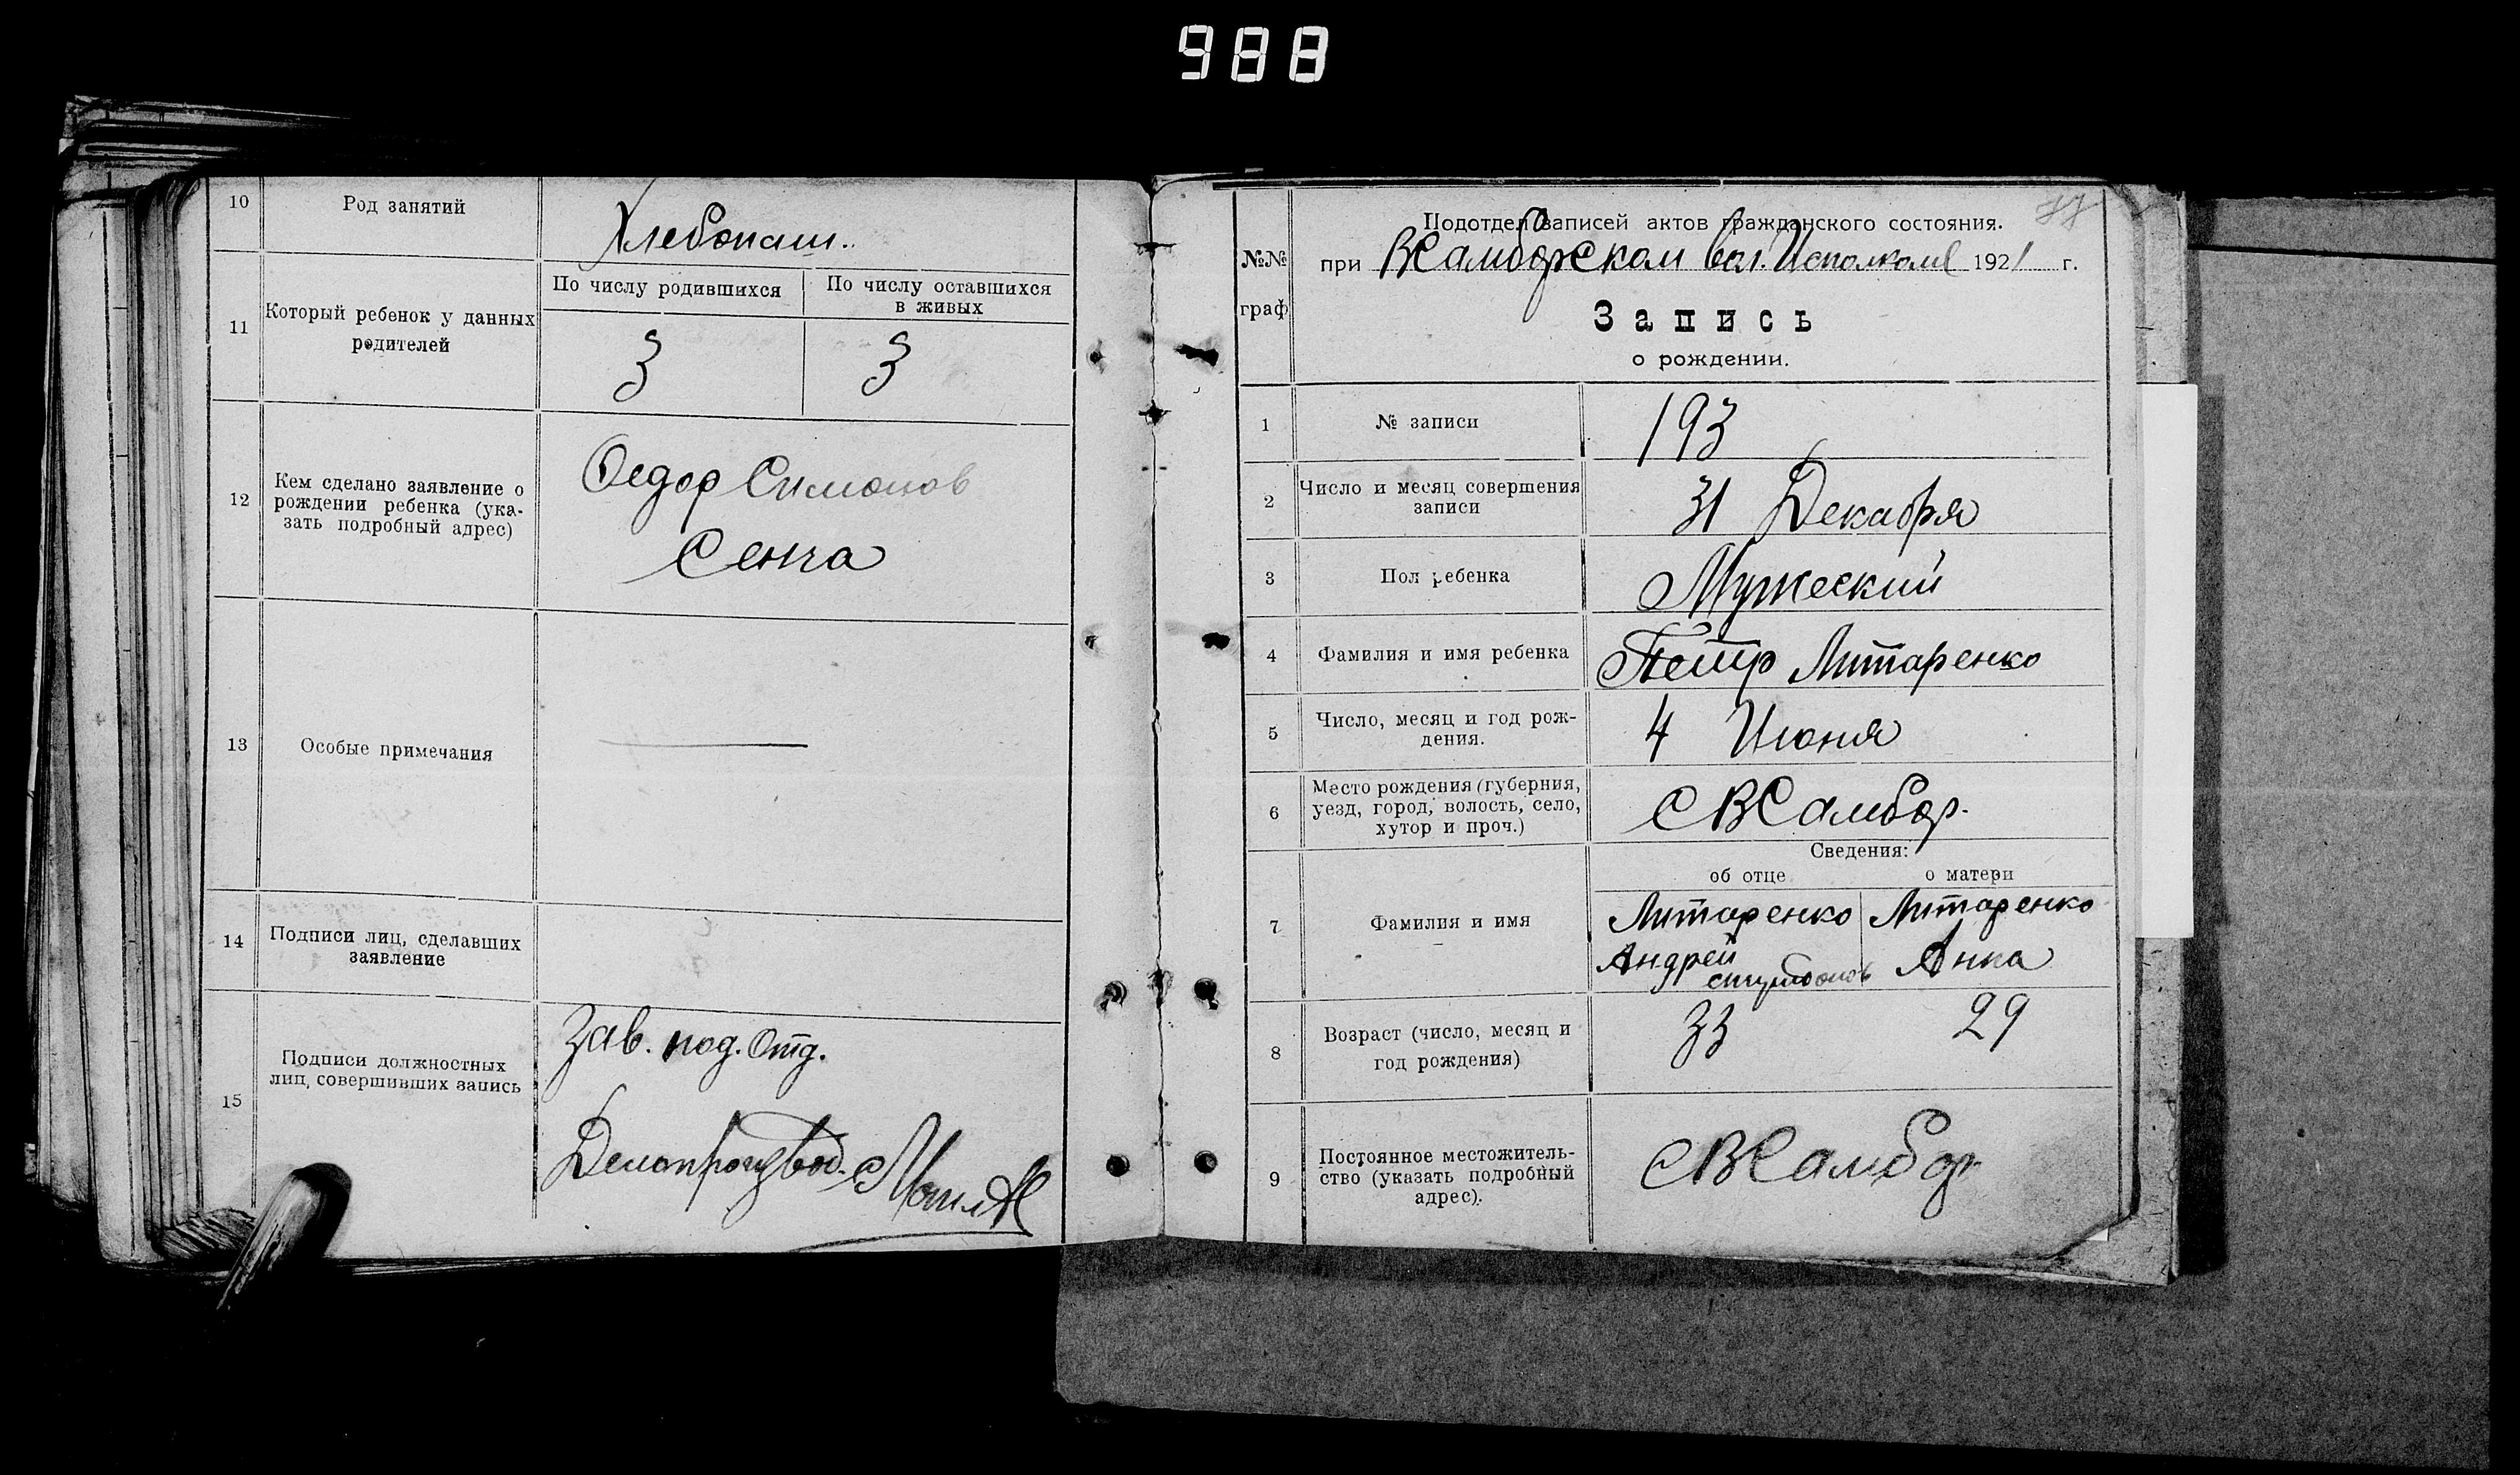 988
10 Род занятий Хлебопаш.
11 Который ребенок у данных родителей
По числу родившихся По числу оставшихся в живых
3 3
12 Кем сделано заявление о рождении ребенка (указать подробный адрес)
Федор Симонов
Сенча
13 Особые примечания —
14 Подписи лиц, сделавших заявление
15 Подписи должностных лиц, совершивших запись
Зав. под. Отд.
Делопроизвод.
77
№№ граф
Подотдел записей актов гражданского состояния.
при ВСамборском Вол. Исполкоме 1921 г.
Запись
о рождении.
1 № записи 193
2 Число и месяц совершения записи 31 Декабря
3 Пол ребенка Мужеский
4 Фамилия и имя ребенка Петр Литаренко
5 Число, месяц и год рождения. 4 Июня
6 Место рождения (губерния, уезд, город, волость, село, хутор и проч.) С ВСамбор.
Сведения:
об отце о матери
7 Фамилия и имя
Литаренко Литаренко
Андрей Анна
8 Возраст (число, месяц и год рождения) 33 29
9 Постоянное местожительство (указать подробный адрес). С ВСамбор